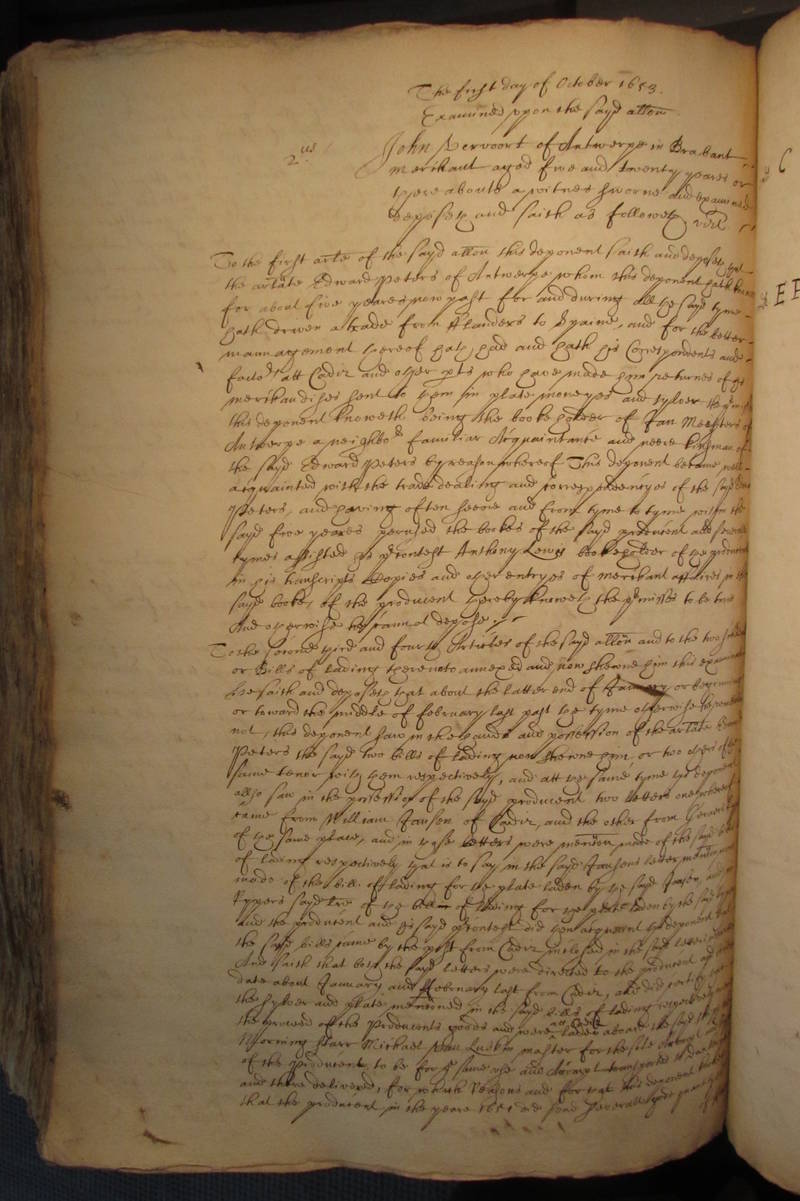 The first day of October 1653.
Examined upon the sayd allon
2us
John Vervoort of Antwerpe in Brabant
Merchant aged five and twenty yeares or
thereabouts a witnes sworne and examined
deposeth and saith as followeth vizt
To the first arle of the sayd allon this deponent saith and deposeth that
the arlate Edward Peters of Antwerpe whom this deponent hath knowne
for about five yeares now past for and during all the sayd tyme
hath driven a trade from Flanders to Spaine, and for the better
mannagement thereof hath had and hath his Correspondents and
factors att Cadiz and other pts who have made him returnes of his
merchandizes sent to them in plate moneyes and sylver the
this deponent knoweth being the bookeholder of Jan Meesters of
Antwerpe a neighbor familiar Acquaintante and neere kinsman of
the sayd Edward Peters by reason whereof This deponent became well
acquainted with the trade dealing and correspondencyes of the sayd
Peters, and having often seene and from tyme to tyme within the
sayd five yeares perused the bookes of the sayd producent and severall
tymes assisted his Anthony Lewis bookeholder of the producent
in his transcripts Copies and other entryes of merchant affaires in the
sayd bookes of the producent thereby knoweth the premisses to be true
And otherwise he cannot depose
To the second third and fourth Articles of the sayd allon and to the two
or Bills of lading thereunto annexed and now shewne him this
hee saith and deposeth that about the latter end of January or beginning
or toward the middle of February last past the tyme otherwise
not, this deponent saw in the hands and possession of the arlate
Peters the sayd two bills of lading now shewne him, or two others of the
same tenor with them respectively, and att the same tyme the deponent
allso saw in the possession of the sayd producent two letters one whereof
came from William Jansen of Cadiz, and the other from
of the same place, and in those letters were mention made of the sayd bills
of lading respectively that is to say in the sayd Jansens letter mention
made of the bill of lading for the plate laden by the sayd Jansen, and in
Kyppers sayd lre of the bill of lading for the plate laden by the sayd
and the producent and his sayd did then acquaint the deponent that
the sayd bills came by the post from Cadiz inclosed in the sayd letters
And saith that both the sayd letters were directed to the producent
date about January and February last from Cadiz, and did
the sylver and plate mentioned in the sayd bills of lading respectively
the proceed of the Producents goods and were att Cadiz laden aboard the sayd ship
Morning Starr Michael Van Lubkin master for the sole account
of the Producent to be for the same use and Accompt transported to
and there delivered, for which reasons and for that this deponent
that the producent in the yeare 1651 did send severall